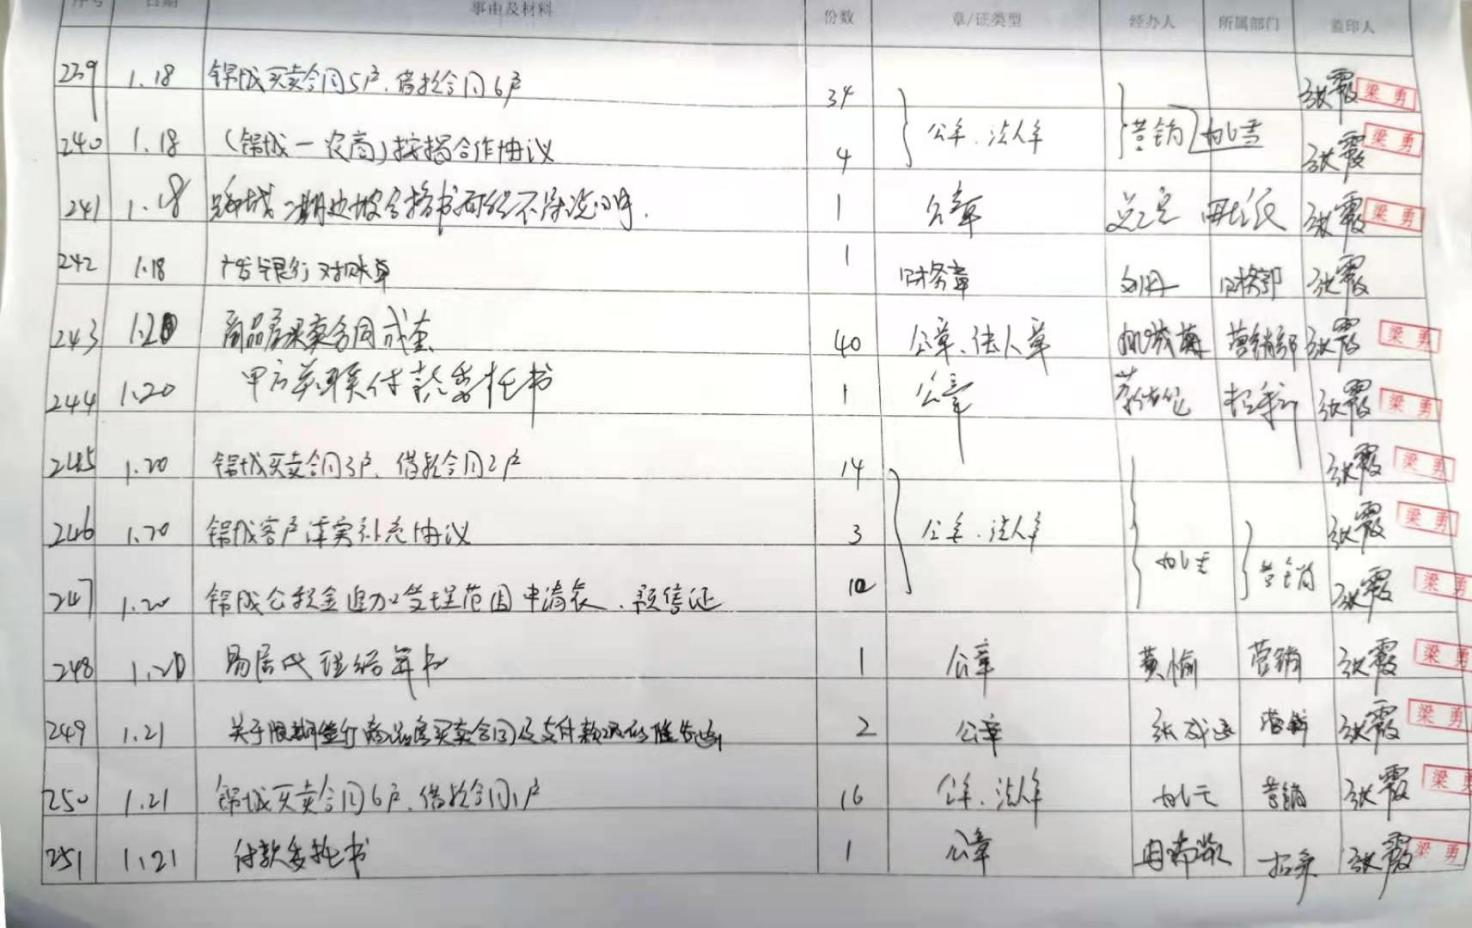 序号 日期 事由及材料 份数 章/证类型 经办人 所属部门 监印人
239 1.18 锦城买卖合同5户、借款合同6户 34 张霞 梁勇
公章、法人章 营销
240 1.18 (锦城一农商)按揭合作协议 4 张霞 梁勇
241 1.18 锦城二期 1 公章 张霞 梁勇
242 1.18 广发银行对账单 1 财务章 财务部 张霞
243 1.20 商品房买卖合同 40 公章、法人章 营销部 张霞 梁勇
244 1.20 付款委托书 1 公章 张霞 梁勇
245 1.20 锦城买卖合同3户、借款合同2户 14 张霞 梁勇
246 1.20 锦城客户 补充协议 3 公章、法人章 张霞 梁勇
营销
247 1.20 锦城公积金追加 范围申请表、预售证 10 张霞 梁勇
248 1.20 易居代理结算书 1 公章 黄愉 营销 张霞 梁勇
249 1.21 关于限期 商品房买卖合同及支付款项的催告函 2 公章 营销 张霞 梁勇
250 1.21 锦城买卖合同6户、借款合同1户 16 公章、法人章 营销 张霞 梁勇
251 1.21 付款委托书 1 公章 招采 张霞 梁勇